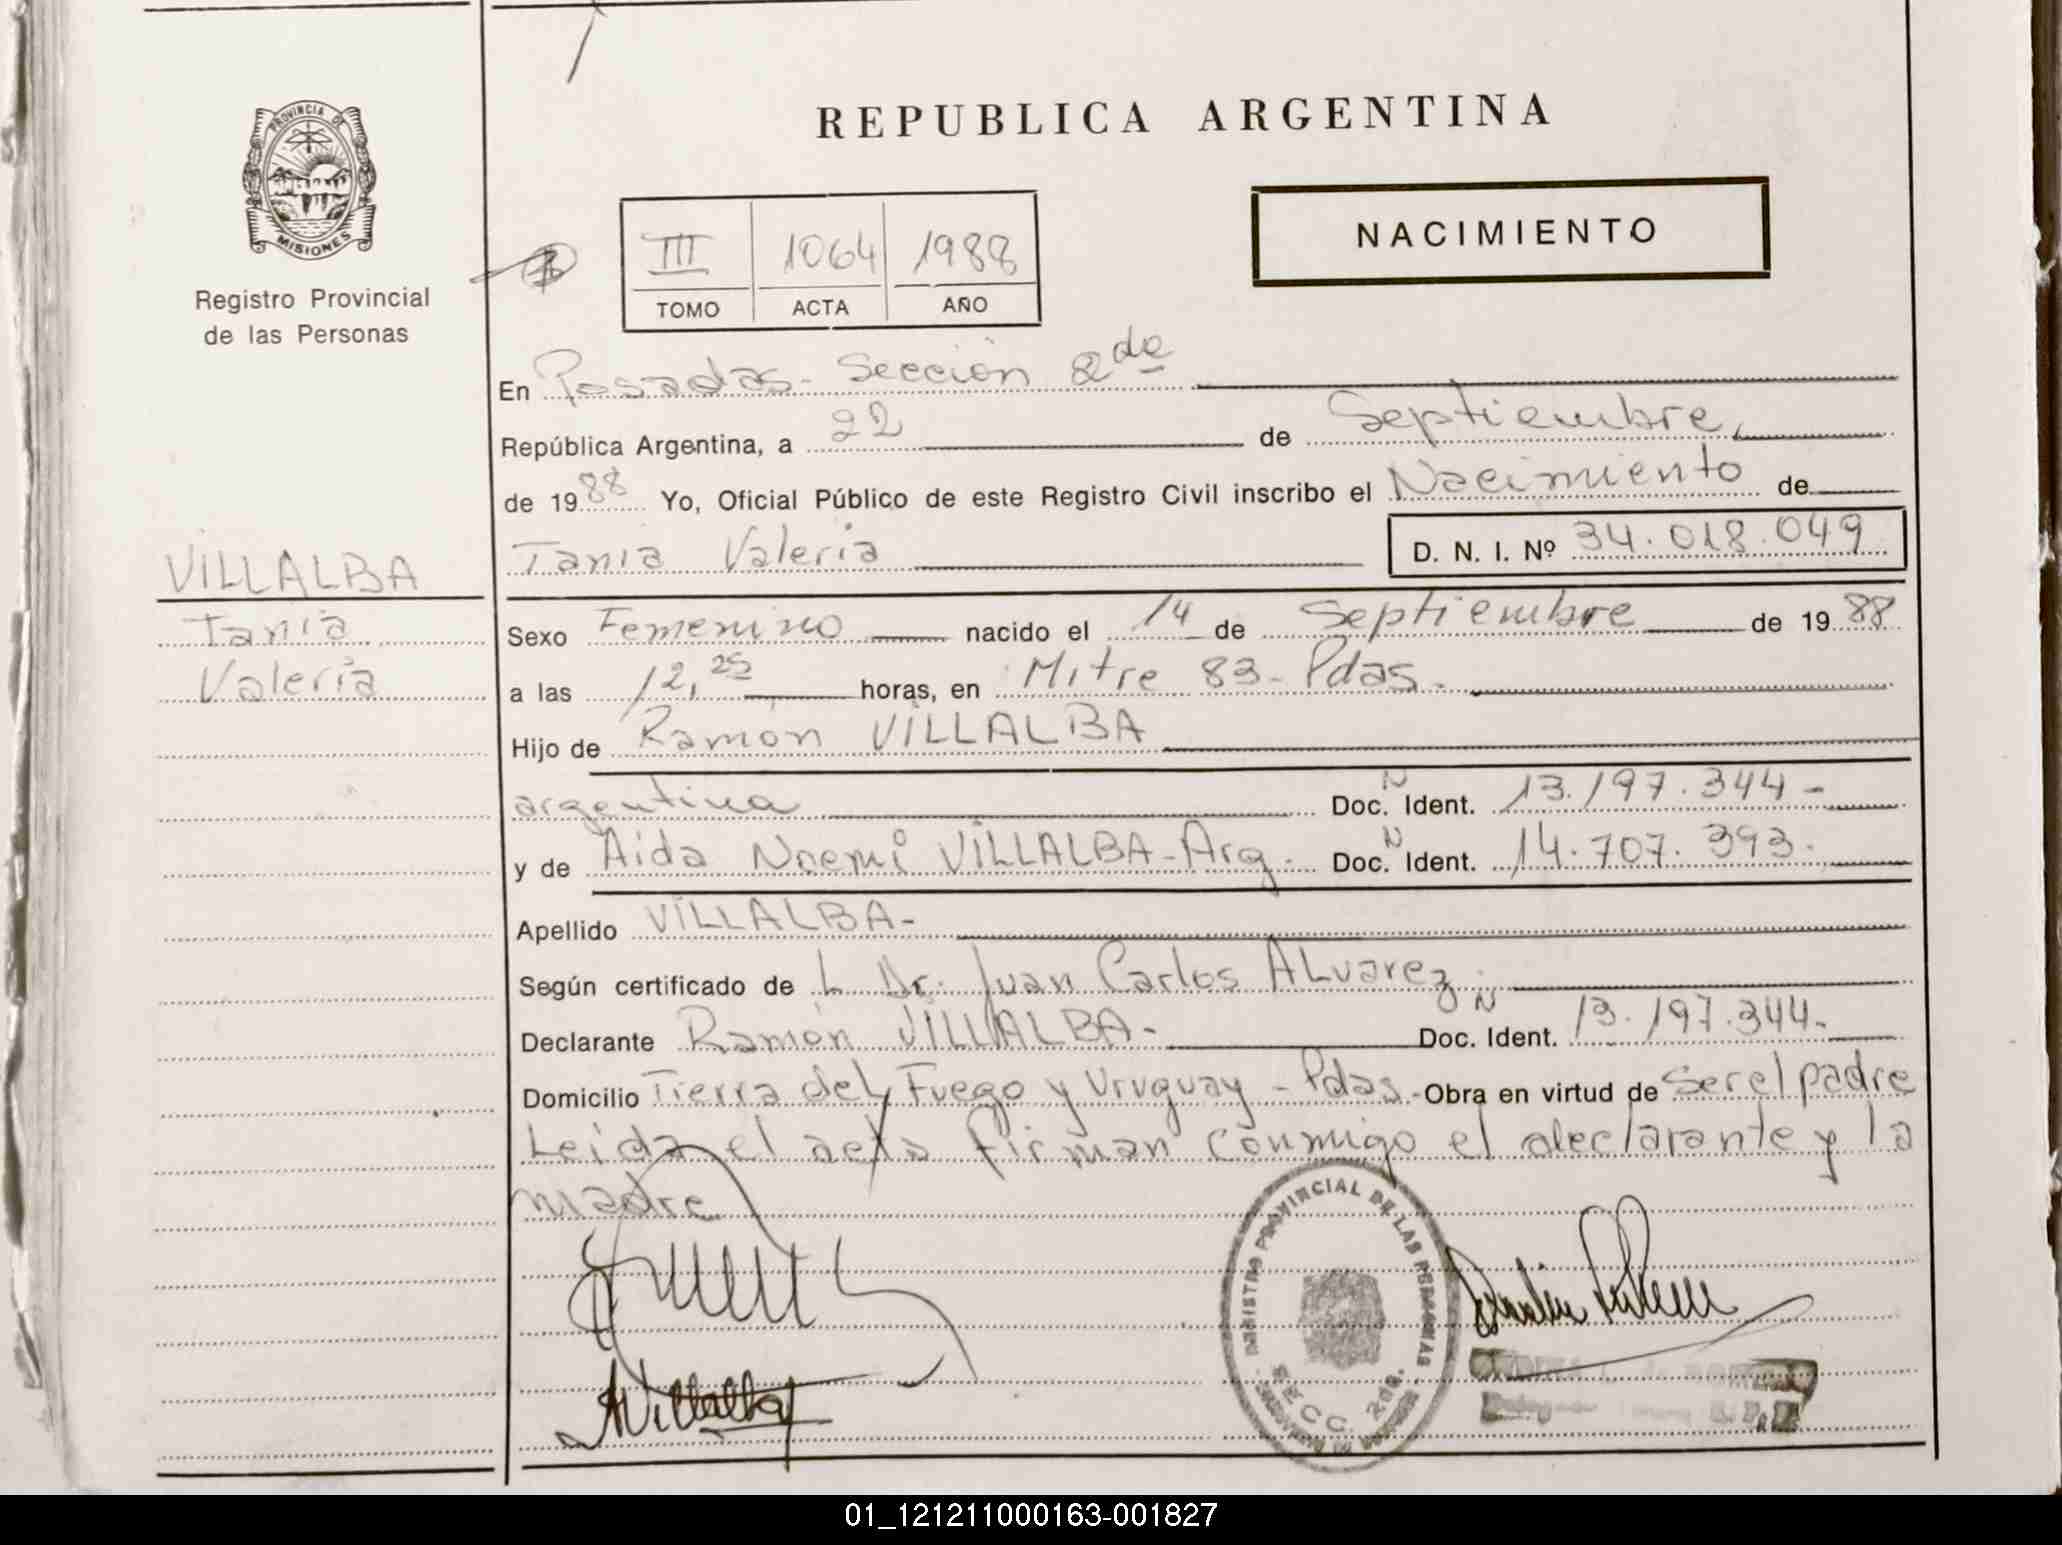 PROVINCIA DE
MISIONES
Registro Provincial
de las Personas
REPUBLICA ARGENTINA
NACIMIENTO
III 1064 1988
TOMO ACTA AÑO
En Posadas - Sección 2da
República Argentina, a 22 de Septiembre,
de 1988 Yo, Oficial Público de este Registro Civil inscribo el Nacimiento de
Tania Valeria D. N. I. Nº 34.018.049
VILLALBA
Tania
Valeria
Sexo Femenino nacido el 14 de Septiembre de 1988
a las 12,25 horas, en Mitre 83 - Pdas.
Hijo de Ramón VILLALBA
argentina Doc. N Ident. 13.197.344 -
y de Aida Noemí VILLALBA - Arg. Doc. N Ident. 14.707.393.
Apellido VILLALBA -
Según certificado de L Dr. Juan Carlos ALvarez
Declarante Ramón VILLALBA - Doc. Ident. N 13.197.344 -
Domicilio Tierra del Fuego y Uruguay - Pdas. - Obra en virtud de ser el padre
Leida el acta firman conmigo el declarante y la
madre
AVillalba
REGISTRO PROVINCIAL DE LAS PERSONAS
SECC. 2da.
01_121211000163-001827